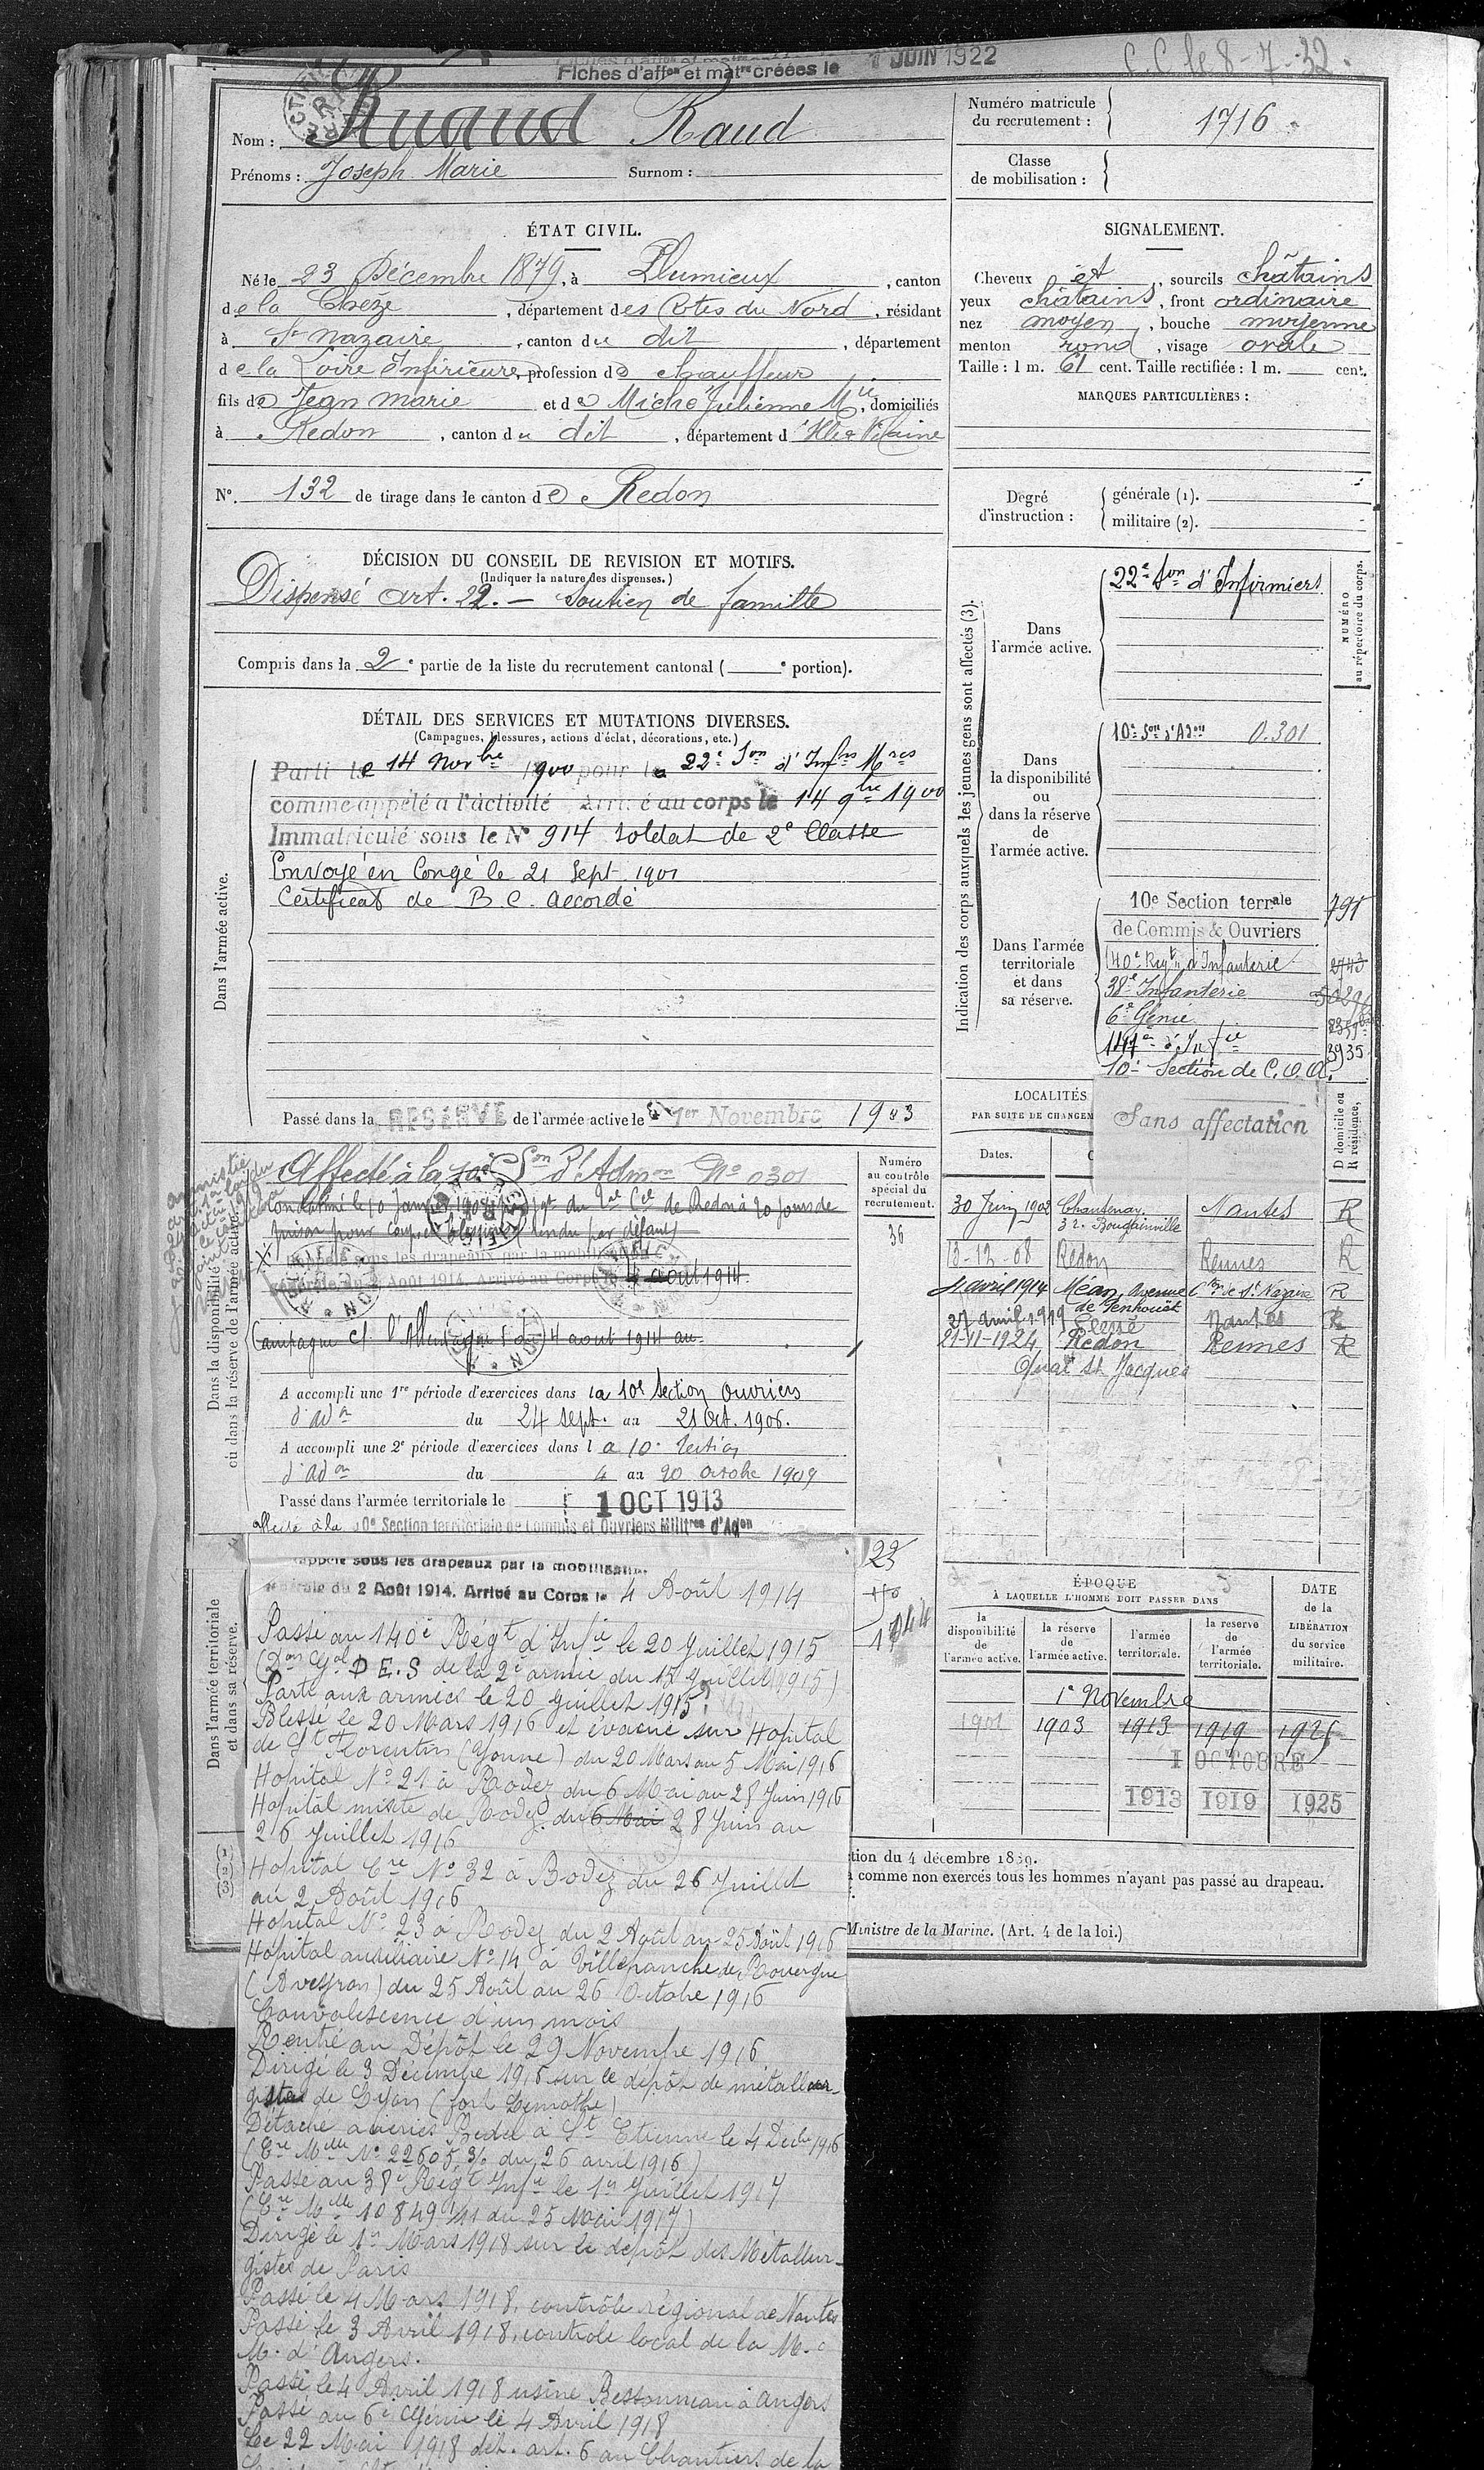 Fiches d'affon et matre créées le 1 JUIN 1922
C.C. le 8-7-32.
Nom : Ruaud Raud
Prénoms : Joseph Marie Surnom :
Numéro matricule du recrutement : 1716
Classe de mobilisation :
ÉTAT CIVIL.
Né le 23 Décembre 1879, à Plumieux, canton
de la Cheze, département des Côtes du Nord, résidant
à St Nazaire, canton du dit, département
de la Loire Inférieure, profession de chauffeur
fils de Jean Marie et de Miché Julienne Mie, domiciliés
à Redon, canton du dit, département d'Ille & Vilaine
N° 132 de tirage dans le canton de Redon
SIGNALEMENT.
Cheveux et, sourcils châtains
yeux châtains, front ordinaire
nez moyen, bouche moyenne
menton rond, visage ovale
Taille : 1 m. 61 cent. Taille rectifiée : 1 m. cent.
MARQUES PARTICULIÈRES :
Degré d'instruction : générale (1).
militaire (2).
DÉCISION DU CONSEIL DE REVISION ET MOTIFS.
(Indiquer la nature des dispenses.)
Dispensé art. 22. — Soutien de famille
Compris dans la 2e partie de la liste du recrutement cantonal ( e portion).
DÉTAIL DES SERVICES ET MUTATIONS DIVERSES.
(Campagnes, blessures, actions d'éclat, décorations, etc.)
Dans l'armée active.
Parti le 14 Novbre 1900 pour la 22e Son d'Infrs Mres
comme appelé à l'activité Arrivé au corps le 14 9bre 1900
Immatriculé sous le N° 914 soldat de 2e Classe
Envoyé en Congé le 21 Sept 1901
Certificat de B. C. accordé
Passé dans la RÉSERVE de l'armée active le 1er Novembre 1903
Indication des corps auxquels les jeunes gens sont affectés (3).
NUMÉRO au répertoire du corps.
Dans l'armée active.
22e Son d'Infirmiers
Dans la disponibilité ou dans la réserve de l'armée active.
10e Son d'Adon 0.301
Dans l'armée territoriale et dans sa réserve.
10e Section terrale 791
de Commis & Ouvriers
140e Regt d'Infanterie 2743
38e Infanterie
6e Génie
147e d'Infie 3935
10e Section de C.O.A.
Sans affectation
LOCALITÉS
PAR SUITE DE CHANGEM
Dates.
D domicile ou R résidence,
30 Juin 1902 Chantenay. Nantes R
32 r. Bougainville
13-12-08 Redon Rennes R
4 avril 1914 Méan, avenue de Penhouët Cton de St Nazaire R
27 avril 1919 Nantes R
21-11-1924 Redon Rennes R
Quai St Jacques
Dans la disponibilité ou dans la réserve de l'armée active.
Affecté à la 10e Son d'Admon No 0301
Condamné le 10 Janvier 1908 par jgt du Tal Cel de Redon à 20 jours de
prison pour rendu par défaut
Rappelé sous les drapeaux par la mobilisation
générale du 2 Août 1914. Arrivé au Corps le 4 août 1914.
Campagne ct l'Allemagne du 4 aout 1914 au
Numéro au contrôle spécial du recrutement.
36
A accompli une 1re période d'exercices dans la 10e Section Ouvriers
d'adon du 24 sept. au 21 Oct. 1906.
A accompli une 2e période d'exercices dans la 10e Section
d'adon du 4 au 20 octobre 1909
Passé dans l'armée territoriale le 1 OCT 1913
affecté à la 10e Section territoriale de Commis et Ouvriers Militres d'Adon
Dans l'armée territoriale et dans sa réserve.
Rappelé sous les drapeaux par la mobilisation
générale du 2 Août 1914. Arrivé au Corps le 4 Août 1914
Passé au 140e Régt d'Infie le 20 Juillet 1915
(Don Gal D.E.S de la 2e armée du 15 Juillet 1915)
Parti aux armées le 20 Juillet 1915
Blessé le 20 Mars 1916 et évacué sur Hopital
de St Florentin (Yonne) du 20 Mars au 5 Mai 1916
Hopital N° 21 à Rodez du 6 Mai au 28 Juin 1916
Hopital mixte de Rodez du 6 Mai 28 Juin au
26 Juillet 1916
Hopital Cre N° 32 à Rodez du 26 Juillet
au 2 Août 1916
Hopital N° 23 à Rodez du 2 Août au 25 Août 1916
Hopital auxiliaire N° 14 à Villefranche de Rouergue
(Aveyron) du 25 Août au 26 Octobre 1916
Convalescence d'un mois
Rentré au Dépôt le 29 Novembre 1916
Dirigé le 3 Décembre 1916 sur le dépôt de métallur-
gistes de Lyon (fort Lamothe)
Détaché aciéries Bedel à St Etienne le 4 Décbre 1916
(Cre Mlle N° 22605 3/6 du 26 avril 1916)
Passé au 38e Régt Infie le 1er Juillet 1917
(Cre Mlle 10849 1/11 du 25 Mai 1917)
Dirigé le 1er Mars 1918 sur le dépôt des Métallur-
gistes de Paris
Passé le 4 Mars 1918, contrôle régional de Nantes
Passé le 3 Avril 1918, controle local de la M. O
M. d'Angers.
Passé le 4 Avril 1918 usine Bessonneau à Angers
Passé au 6e Génie le 4 Avril 1918
Le 22 Mai 1918 dét. art. 6 au Chantiers de la
23
ÉPOQUE
À LAQUELLE L'HOMME DOIT PASSER DANS
la disponibilité de l'armée active.
la réserve de l'armée active.
l'armée territoriale.
la réserve de l'armée territoriale.
DATE de la LIBÉRATION du service militaire.
1er Novembre
1901 1903 1913 1919 1926
1 OCTOBRE
1913 1919 1925
tion du 4 décembre 1889.
comme non exercés tous les hommes n'ayant pas passé au drapeau.
Ministre de la Marine. (Art. 4 de la loi.)